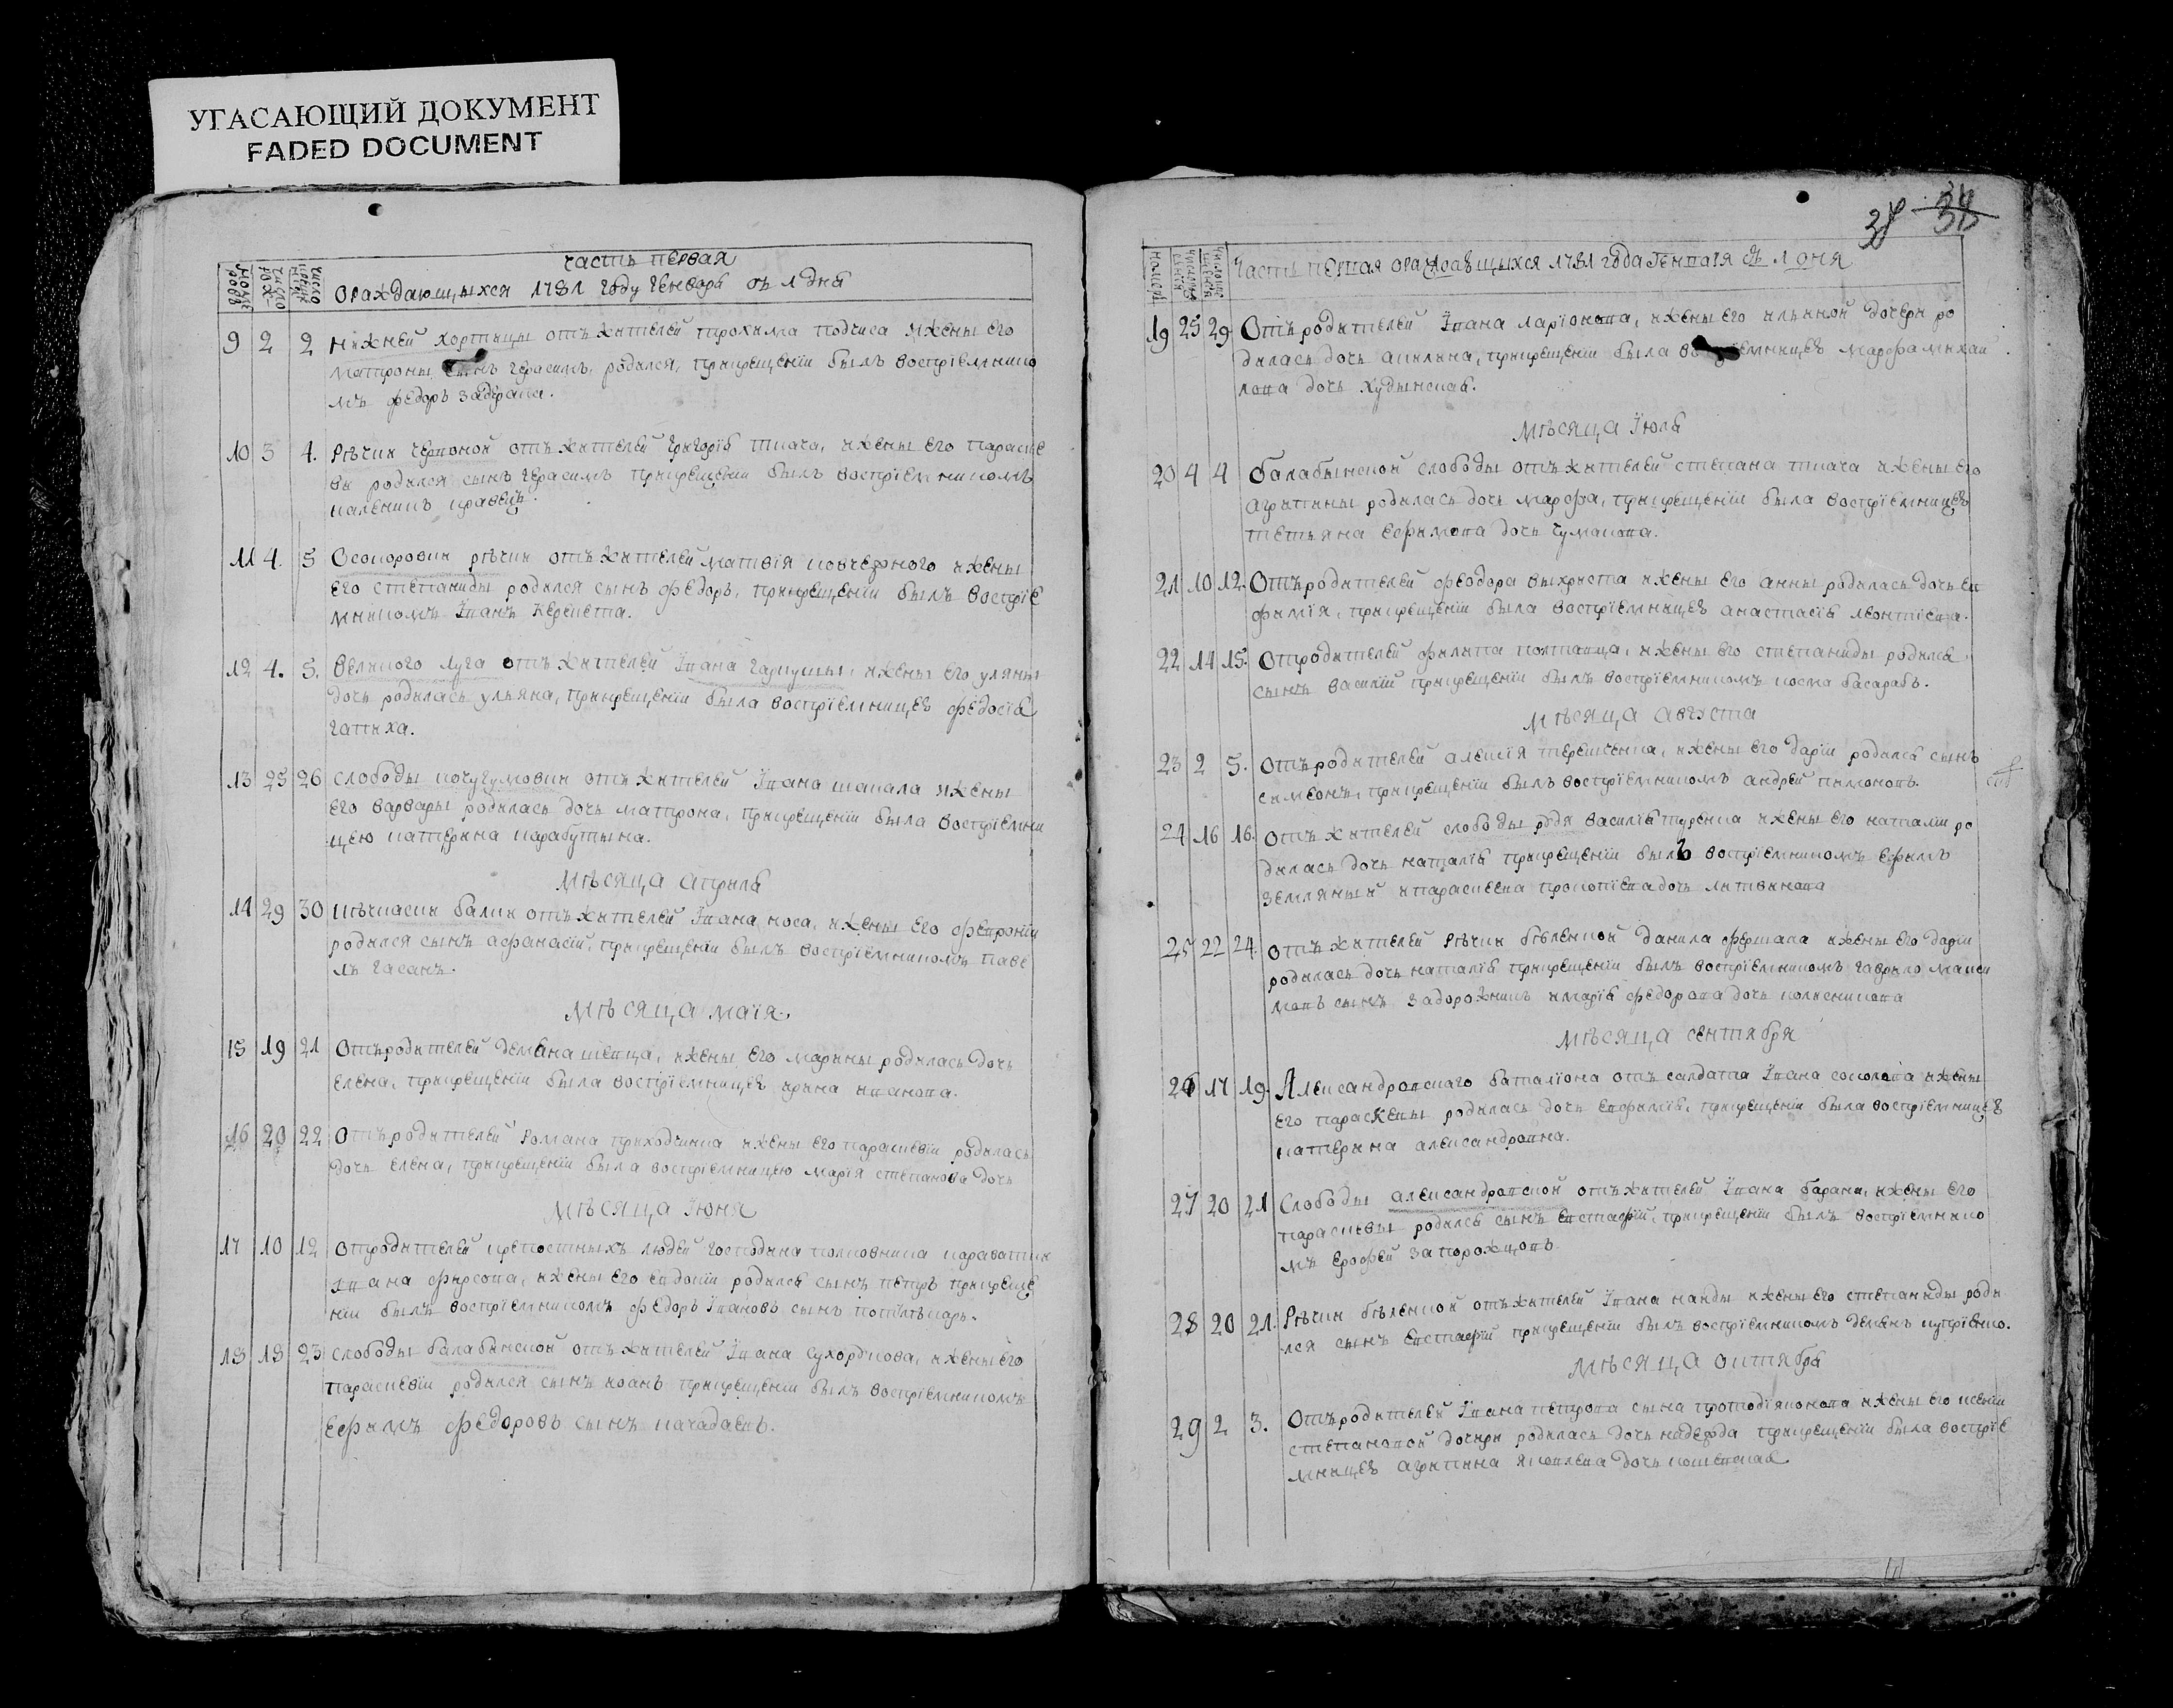 УГАСАЮЩИЙ ДОКУМЕНТ
FADED DOCUMENT
часть первая
ораждающихся 1781 году генваря съ 1 дня
9 2 2 нижней хортицы отъ жителей трохима подчиса ижены его
матроны сынъ герасимъ, родился, прикрещеніи былъ воспріемнико
мъ федоръ
10 3 4. Рѣчки червоной отъ жителей григорія ткача, ижены его параске
вы родился сынъ герасимъ прикрещеніи былъ воспріемникомъ
каленикъ кравецъ.
11 4. 5 Осокоровки рѣчки отъ жителей матвія ижены
его степаниды родился сынъ федоръ, прикрещеніи былъ воспріе
мникомъ Іванъ
12 4. 5. великого луга отъ жителей Івана гаркуши, ижены его уляны
дочь родилась ульяна, прикрещеніи была воспріемницея федосія
гапиха.
13 25 26 слободы кочугумовки отъ жителей Івана шапала ижены
его варвары родилась дочь матрона, прикрещеніи была воспріемни
цею катерина карабутына.
Мѣсяца априля
14 29 30 балки отъ жителей Івана носа, ижены его февроніи
родился сынъ афанасій, прикрещеніи былъ воспріемникомъ паве
лъ гасанъ.
Мѣсяца маія.
15 19 21 Отъ родителей демяна швеца, ижены его марины родилась дочь
елена, прикрещеніи была воспріемницея ирина иванова.
16 20 22 Отъ родителей романа приходчинка ижены его параскевіи родилась
дочь елена, прикрещеніи была воспріемницею марія степанова дочь
Мѣсяца Іюня
17 10 12 Отродителей крепостныхъ людей господина полковника
Івана фирсова, ижены его евдокіи родился сынъ петръ прикреще
ніи былъ воспріемникомъ федоръ Івановъ сынъ
18 18 23 слободы балабинской отъ жителей Івана ижены его
параскевіи родился сынъ иоанъ прикрещеніи былъ воспріемникомъ
ефимъ федоровъ сынъ
часть первая ораждающихся 1781 года генваря съ 1 дня
19 25 29 Отъ родителей Івана ларіонова, ижены его дочери ро
дилась дочь акилина, прикрещеніи была воспріемницея марфа михай
лова дочь
Мѣсяца Іюля
20 4 4 балабинской слободы отъ жителей степана ткача ижены его
агрипины родилась дочь марфа, прикрещеніи была воспріемницея
тетьяна ефимова дочь чумакова.
21 10 12. Отъ родителей феодора выхриста ижены его анны родилась дочь ев
фимія, прикрещеніи была воспріемницея анастасія
22 14 15. Отродителей филипа полтавца, ижены его степаниды родился
сынъ василій прикрещеніи былъ воспріемникомъ косма басарабъ.
Мѣсяца августа
23 2 5. Отъ родителей алексія терешенка, ижены его даріи родился сынъ
симеонъ, прикрещеніи былъ воспріемникомъ андрей пимоновъ.
24 16 16. отъ жителей слободы василія туренка ижены его наталіи ро
дилась дочь наталія прикрещеніи былъ воспріемникомъ ефимъ
земляный ипараскева прокопіева дочь литвинова
25 22 24. отъ жителей рѣчки бѣленкой данила ижены его даріи
родилась дочь наталія прикрещеніи былъ воспріемникомъ гаврило макси
мовъ сынъ задорожникъ имарія федорова дочь колесникова
Мѣсяца сентября
26 17 19. Александровскаго баталіона отъ солдата Івана соколова ижены
его параскевы родилась дочь евфимія, прикрещеніи была воспріемницея
катерина александровна.
27 20 21 Слободы александровской отъ жителей Івана барана, ижены его
параскевы родился сынъ евстафій, прикрещеніи былъ воспріемнико
мъ ерофей запорожцовъ
28 20 21. Рѣчки бѣленкой отъ жителей Івана ижены его степаниды роди
лся сынъ евстафій прикрещеніи былъ воспріемникомъ демянъ
Мѣсяца октября
29 2 3. Отъ родителей Івана петрова сына протодіяконова ижены его ксеніи
степановой дочери родилась дочь надежда прикрещеніи была воспріе
мницея агрипина яковлева дочь